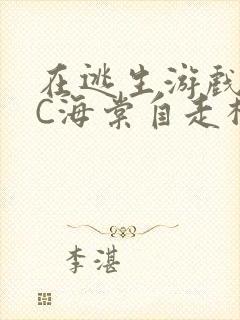 在逃生游戏
C海棠自走
李湛